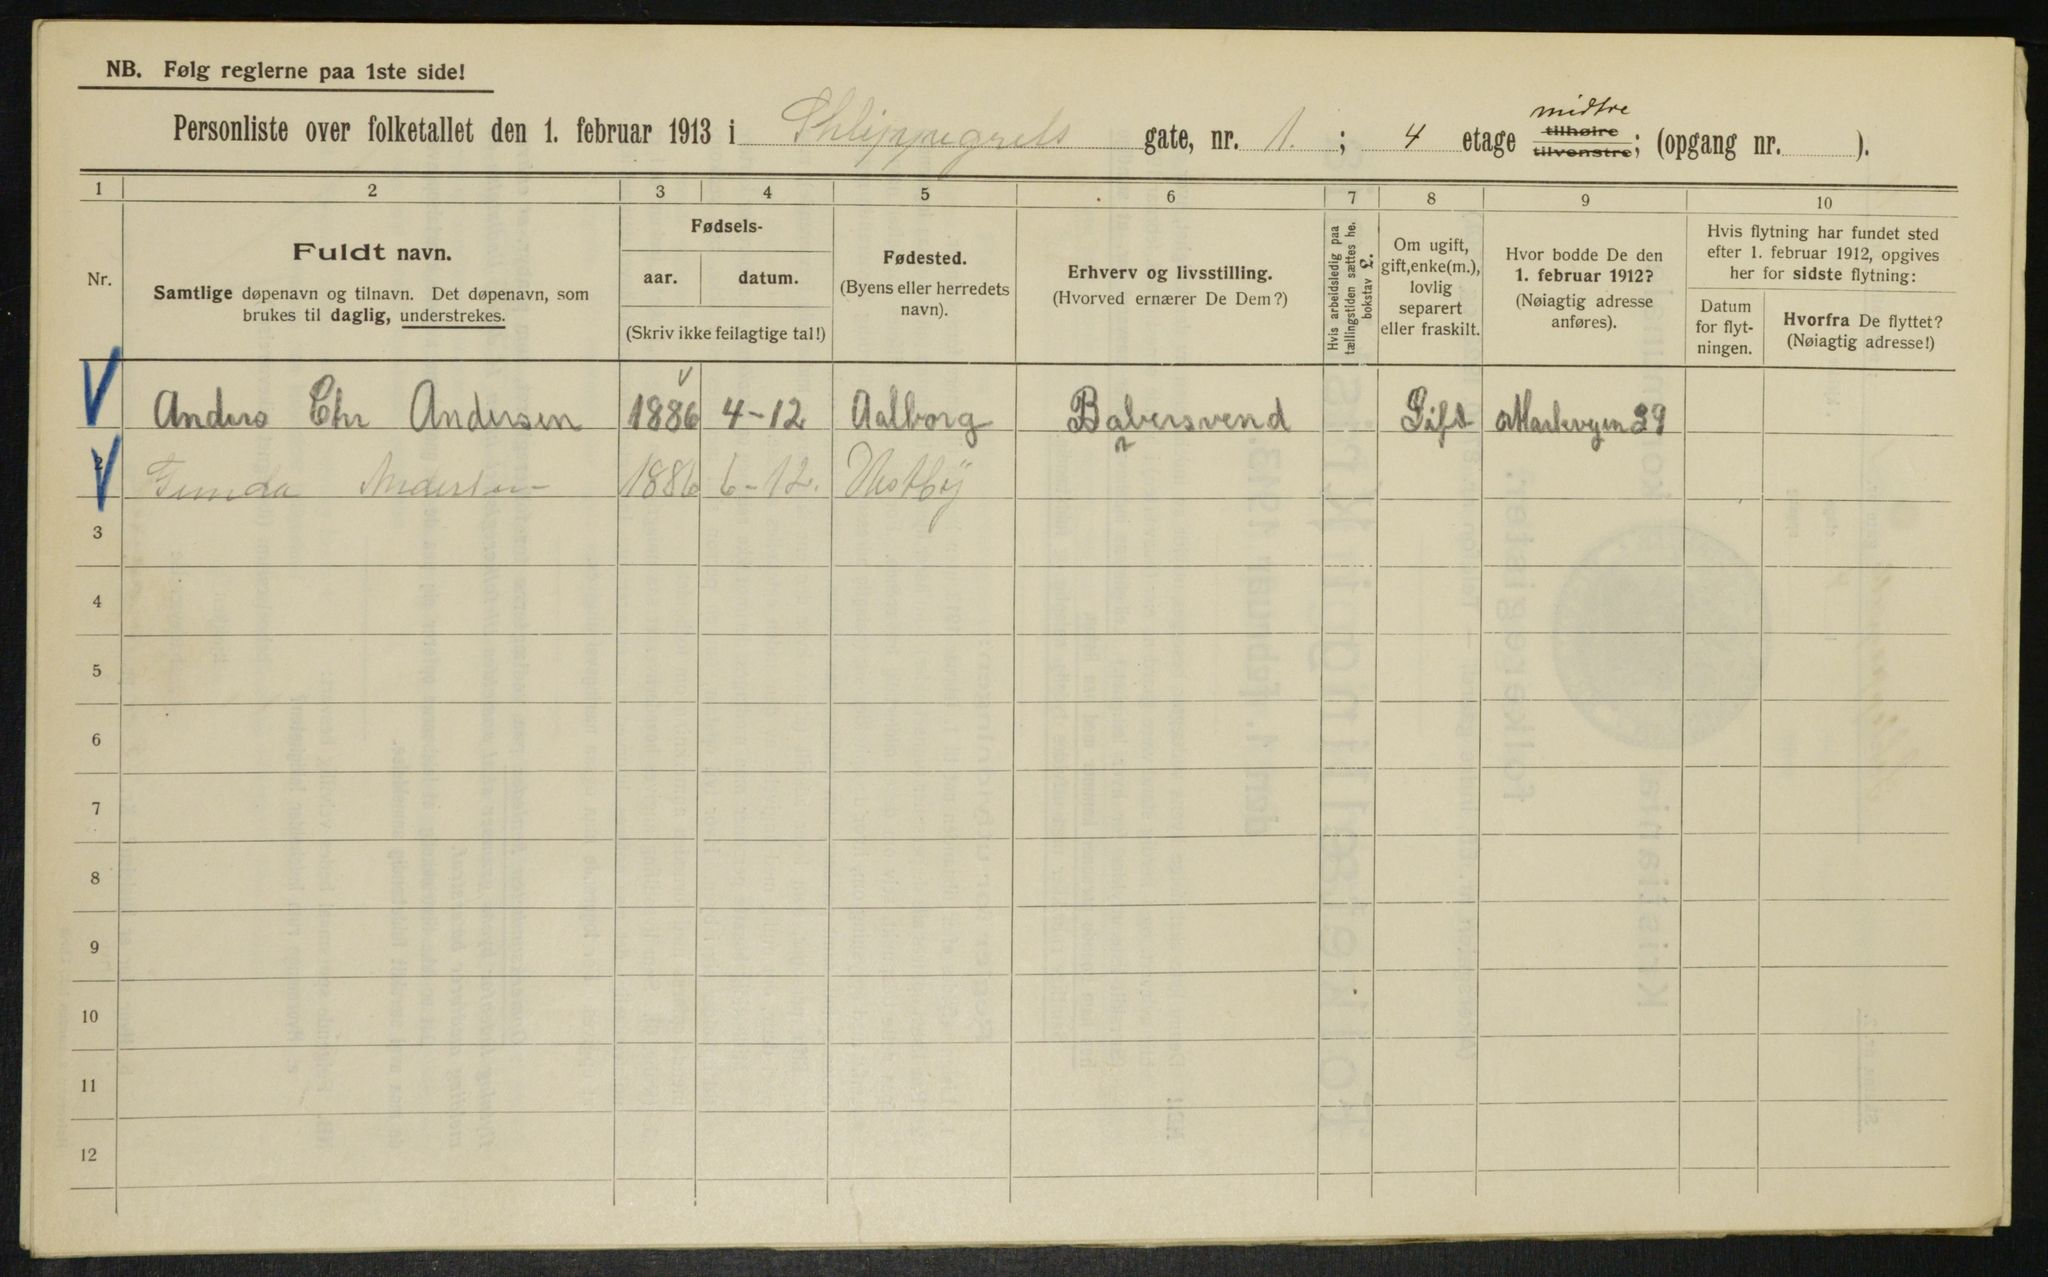 NB. Følg reglerne paa 1ste side!
midtre
Personliste over folketallet den 1. februar 1913 i Schleppegrels gate, nr. 1. ; 4 etage tilhøire tilvenstre; (opgang nr. ).
1 2 3 4 5 6 7 8 9 10
Nr.
Fuldt navn.
Samtlige døpenavn og tilnavn. Det døpenavn, som
brukes til daglig, understrekes.
Fødsels-
aar. datum.
(Skriv ikke feilagtige tal!)
Fødested.
(Byens eller herredets
navn).
Erhverv og livsstilling.
(Hvorved ernærer De Dem?)
Hvis arbeidsledig paa
tællingstiden sættes he.
bokstav L.
Om ugift,
gift, enke(m.),
lovlig
separert
eller fraskilt.
Hvor bodde De den
1. februar 1912?
(Nøiagtig adresse
anføres).
Hvis flytning har fundet sted
efter 1. februar 1912, opgives
her for sidste flytning:
Datum
for flyt-
ningen.
Hvorfra De flyttet?
(Nøiagtig adresse!)
Anders Chr Andersen 1886 4-12 Aalborg Babersvend Gift Markvejen 29
2 Gunda Andersen 1886 6-12. Vestby
3
4
5
6
7
8
9
10
11
12